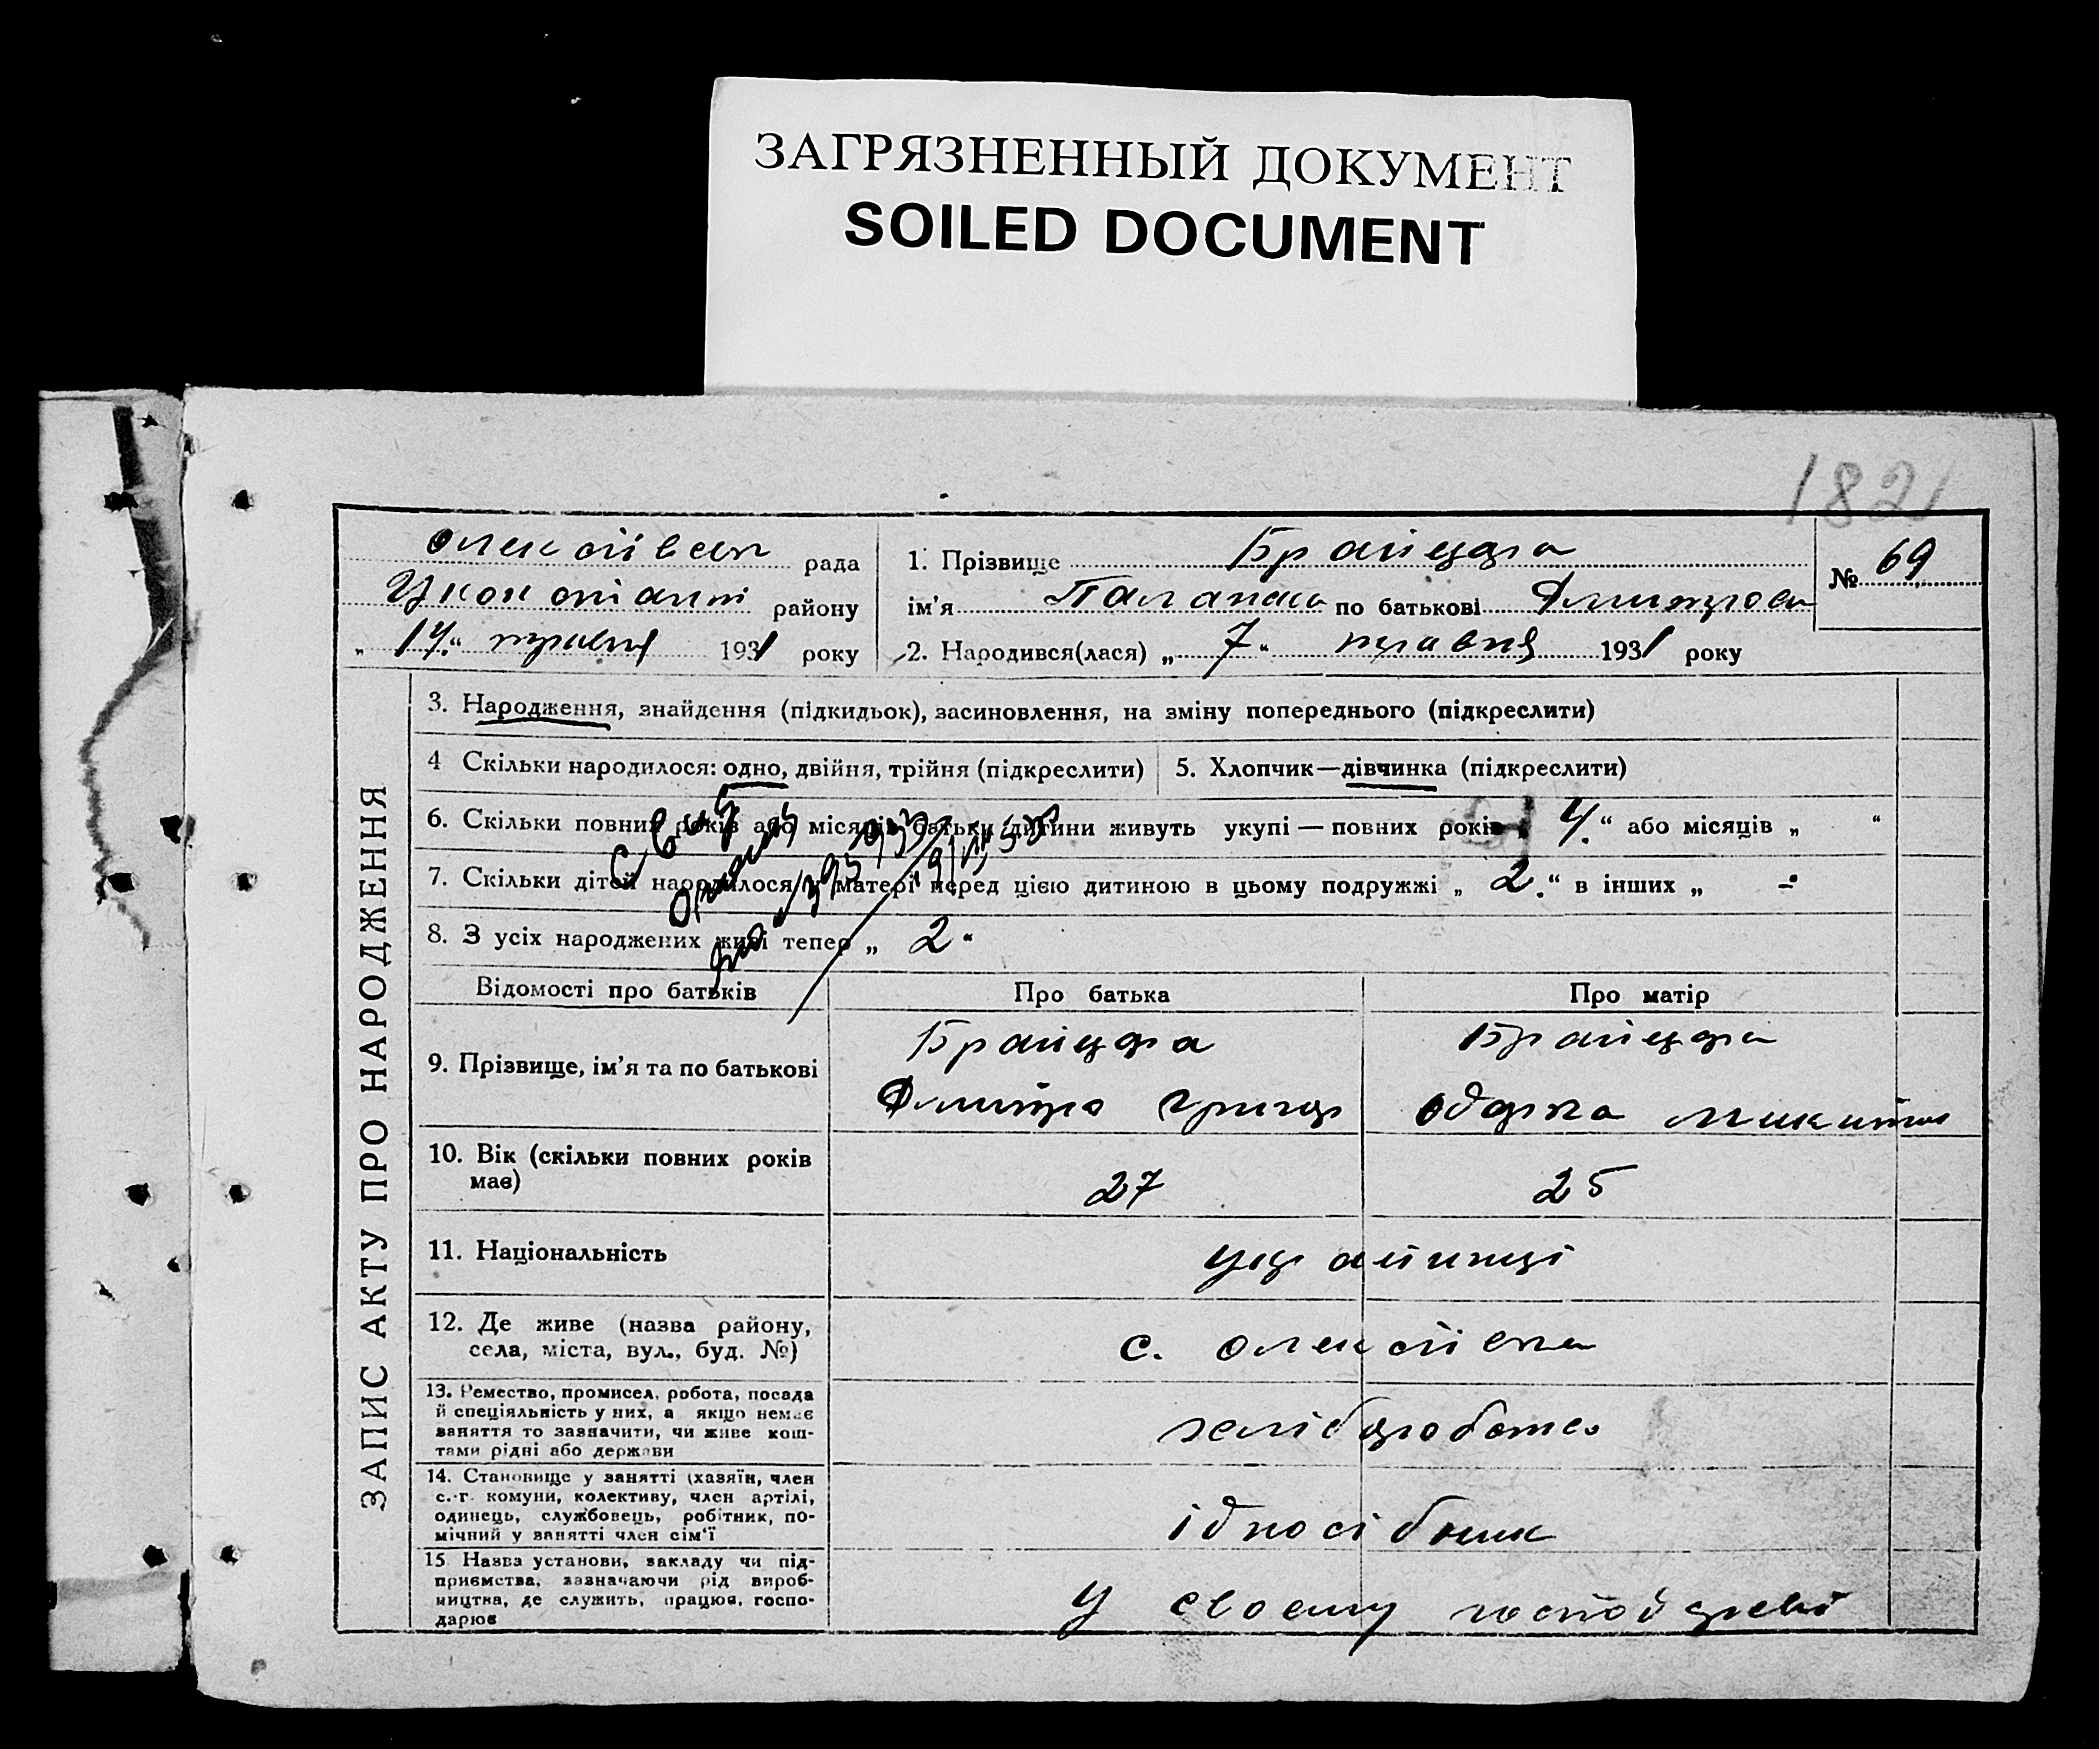 ЗАГРЯЗНЕННЫЙ ДОКУМЕНТ
SOILED DOCUMENT
182
рада
району
„ 14 “ травня 1931 року
1. Прізвище Брайцара
ім'я по батькові Дмитрова
2. Народився(лася) „ 7 “ травня 1931 року
№ 69
ЗАПИС АКТУ ПРО НАРОДЖЕННЯ
3. Народження, знайдення (підкидьок), засиновлення, на зміну попереднього (підкреслити)
4 Скільки народилося: одно, двійня, трійня (підкреслити)
5. Хлопчик—дівчинка (підкреслити)
6. Скільки повних років або місяців батьки дитини живуть укупі — повних років „ 4. “ або місяців „ “
7. Скільки дітей народилося у матері перед цією дитиною в цьому подружжі „ 2. “ в інших „ -
8. З усіх народжених живі тепер „ 2 “
Відомості про батьків
Про батька
Про матір
9. Прізвище, ім'я та по батькові
Брайцара
Дмитро Григор
Брайцара
Одарка Микит
10. Вік (скільки повних років
має)
27
25
11. Національність
українці
12. Де живе (назва району,
села, міста, вул., буд. №)
с. Олексіївка
13. Ремество, промисел, робота, посада
й спеціяльність у них, а якщо немає
заняття то зазначити, чи живе кош-
тами рідні або держави
хліборобство
14. Становище у занятті (хазяїн, член
с.-г. комуни, колективу, член артілі,
одинець, службовець, робітник, по-
мічний у занятті член сім'ї
15 Назва установи, закладу чи під-
приємства, зазначаючи рід вироб-
ництва, де служить, працює, госпо-
дарює
у своєму господарстві